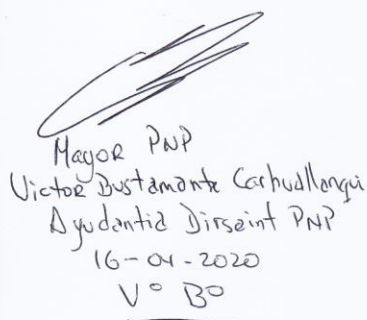 Mayor PNP
Victor Bustamante Carhuallanqui
Ayudantia Dirseint PNP
16-04-2020
V° B°